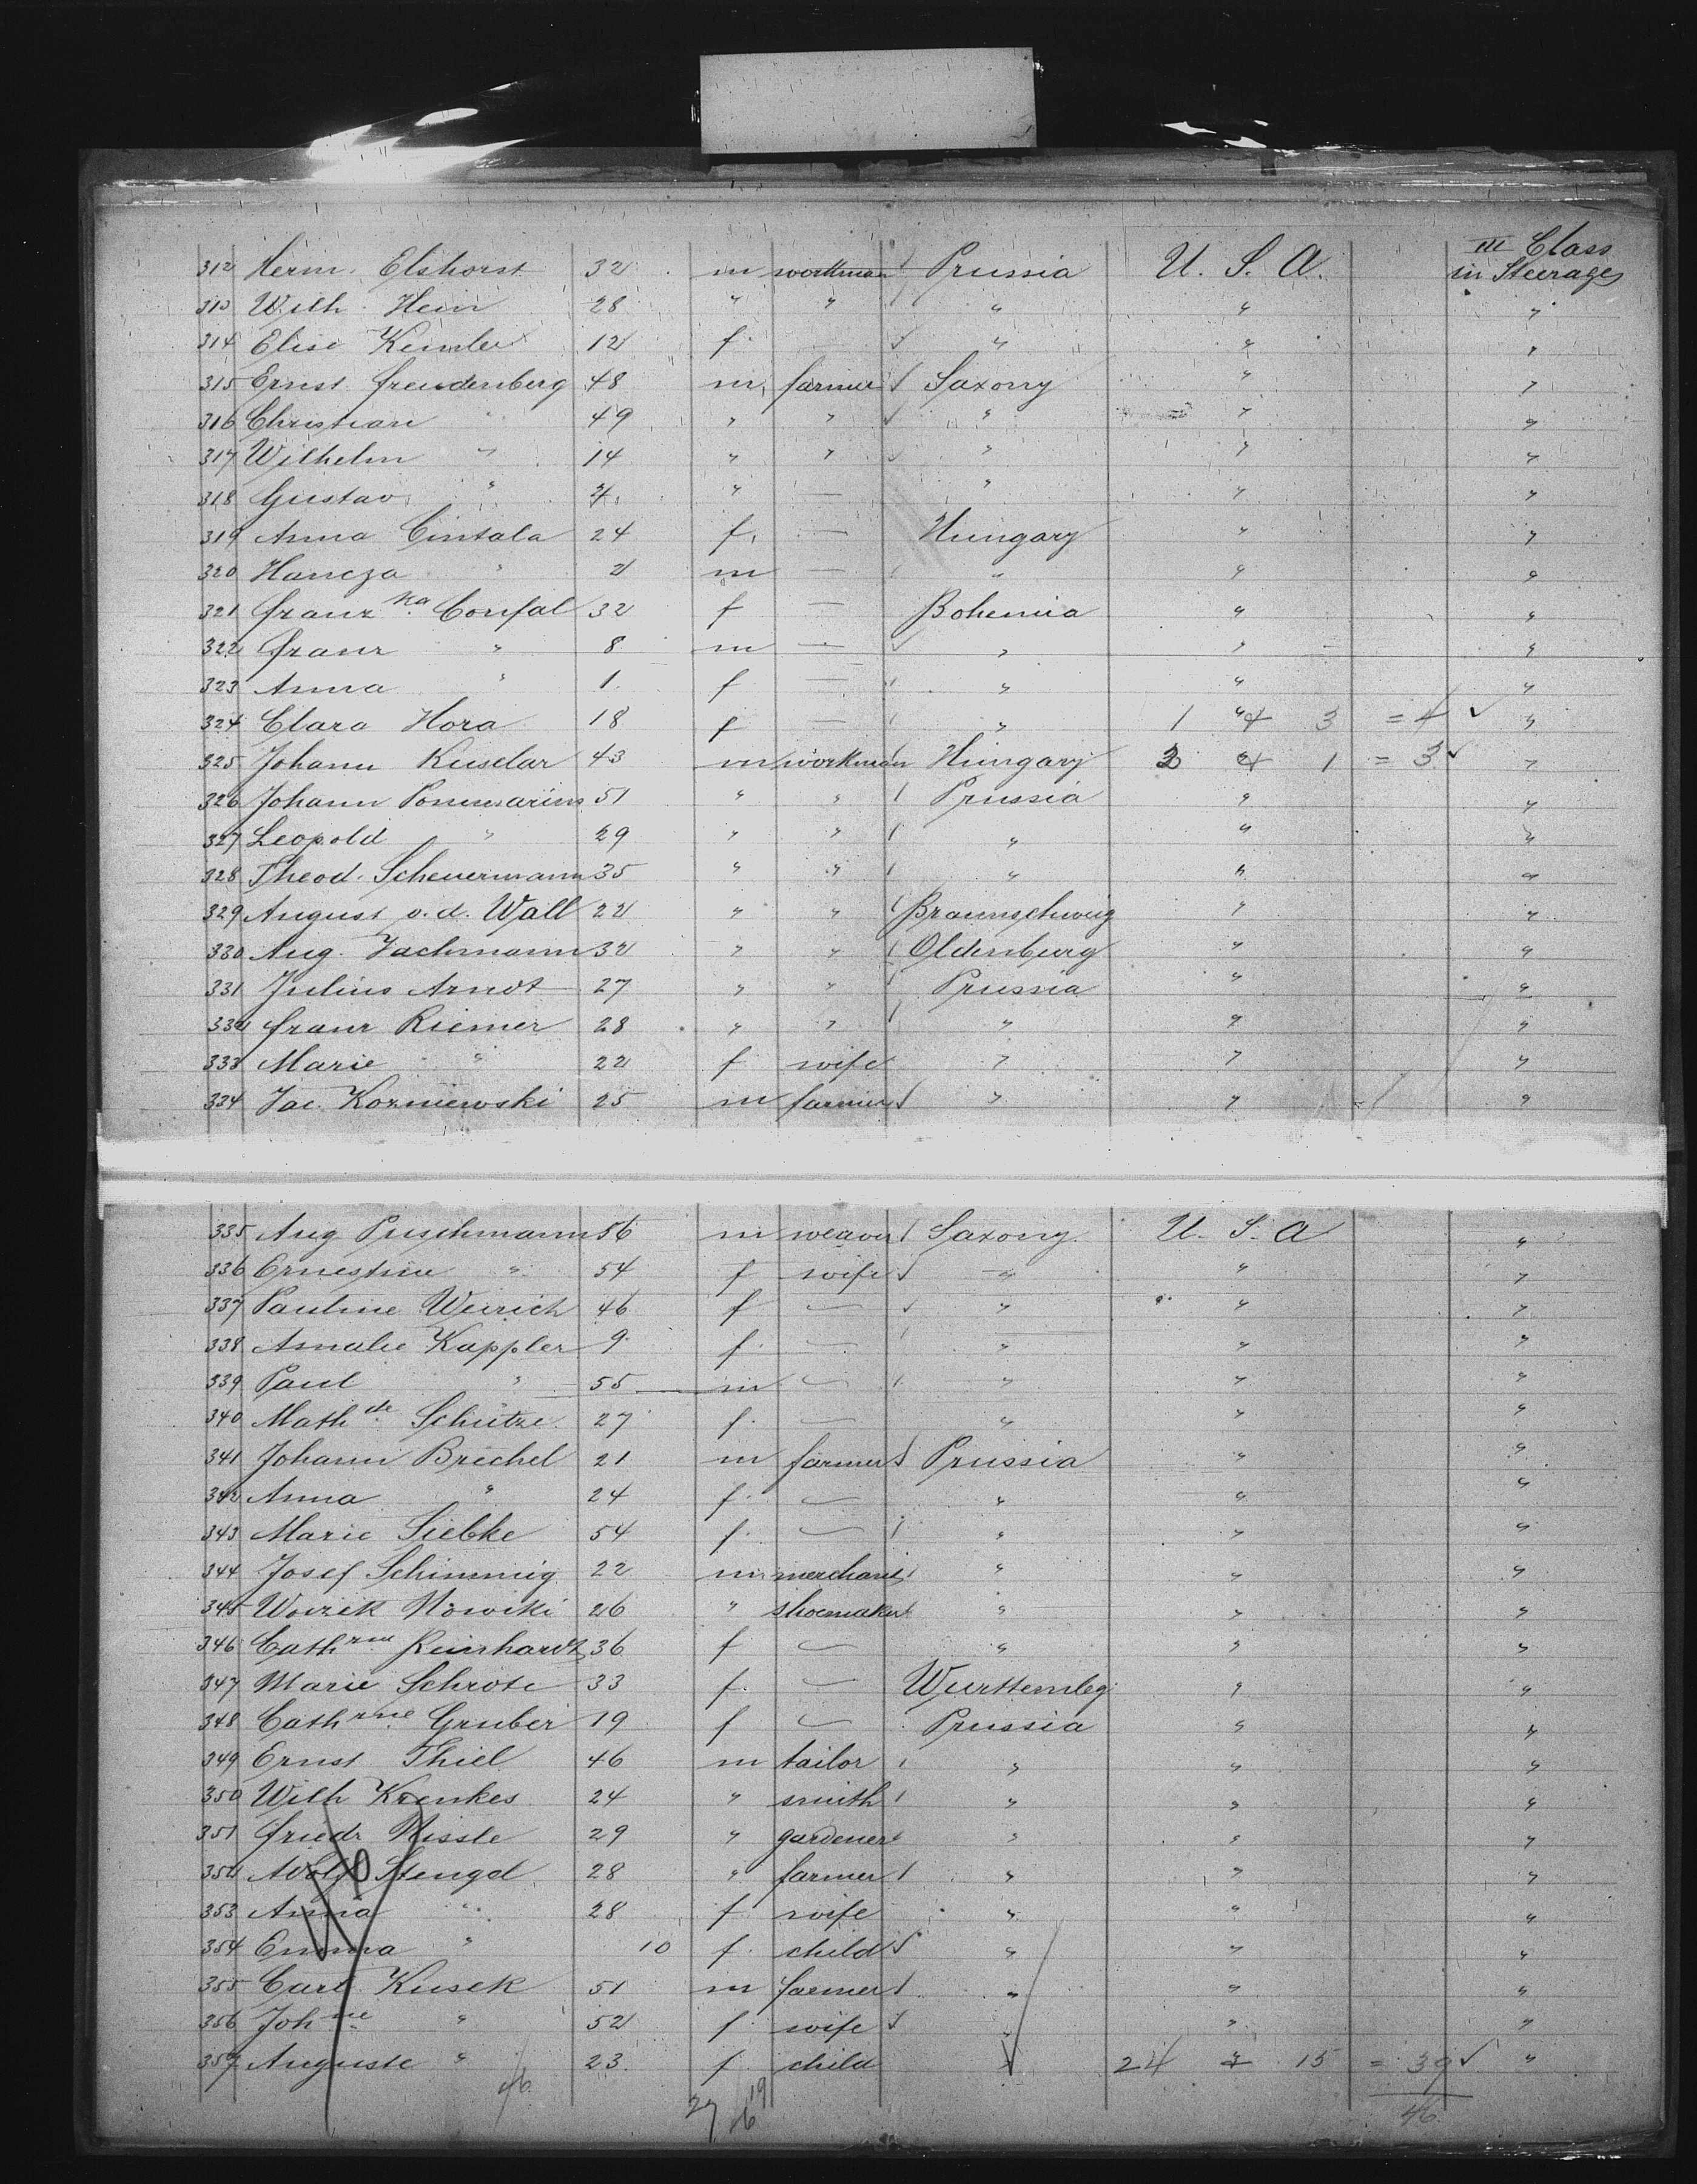 III Class
312 Herm. Elshorst 32 m workman Prussia U. S. A. in Steerage
313 Wilh. Hein 28 " " " " "
314 Elise 12 f. " " "
315 Ernst Freudenberg 48 m. farmer Saxony " "
316 Christian " 49 " " " " "
317 Wilhelm " 14 " " " " "
318 Gustav " " — " " "
319 Anna Cintala 24 f. — Hungary " "
320 Hancza " 2 m — " " "
321 Franzka Confal 32 f — Bohemia " "
322 Franz " 8 m — " " "
323 Anna " 1. f — " " "
324 Clara Hora 18 f — " 1 + 3 = 4 "
325 Johann Kusdar 43 m workman Hungary 2 + 1 = 3 "
326 Johann 51 " " Prussia " "
327 Leopold " 29 " " " " "
328 Theod. Scheuermann 35 " " " " "
329 August v. d. Wall 22 " " Braunschweig " "
330 Aug. Jachmann 32 " " Oldenburg " "
331 Julius Arndt 27 " " Prussia " "
332 Franz Riemer 28 " " " " "
333 Marie " 22 f wife " " "
334 Jac. Kozniewski 25 m farmer " " "
335 Aug Puschmann 56 m weaver Saxony U. S. A "
336 Ernestine " 54 f wife " " "
337 Pauline Weirich 46 f — " " "
338 Amalie Kappler 9 f. — " " "
339 Paul " 55 m — " " "
340 Mathde Schütze 27 f. — " " "
341 Johann Brechel 21 m farmer Prussia " "
342 Anna " 24 f. — " " "
343 Marie Siebke 54 f. — " " "
344 Josef Schimmig 22 m merchant " " "
345 Nowiki 26 " shoemaker " " "
346 Cathrine Reinhardt 36 f — " " "
347 Marie Schrote 33 f. — Wurttembg " "
348 Cathrine Gruber 19 f — Prussia " "
349 Ernst Thiel 46 m tailor " " "
350 Wilh Krenkes 24 " smith " " "
351 Friedr Nissle 29 " gardener " " "
352 Adolf Stengel 28 " farmer " " "
353 Anna " 28 f wife " " "
354 Emma " 10 f. child " " "
355 Carl Kusek 51 m farmer " " "
356 Johne " 52 f wife " " "
357 Auguste " 23 f. child " 24 + 15 = 39 "
46 27 19 46